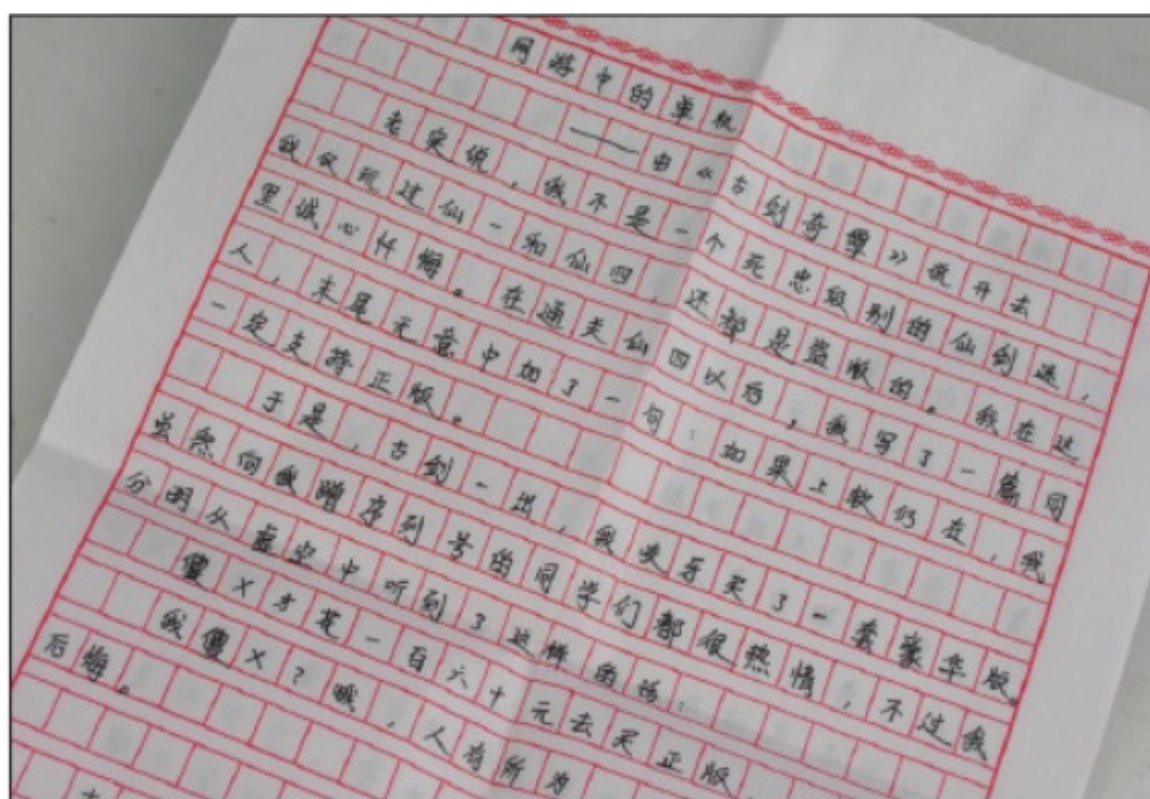 网游中的单机
——由《古剑奇谭》说开去
老实说，我不是一个死忠级别的仙剑迷，
我仅玩过仙一和仙四，还都是盗版的。我在这
里诚心忏悔。在通关仙四以后，我写了一篇同
人，末尾无意中加了一句：如果上软仍在，我
一定支持正版。
于是，古剑一出，我咬牙买了一套豪华版。
虽然向我赠序列号的同学们都很热情，不过我
分明从虚空中听到了这样的话：
傻X才花一百六十元去买正版
我傻X？哦，人有所为
后悔。